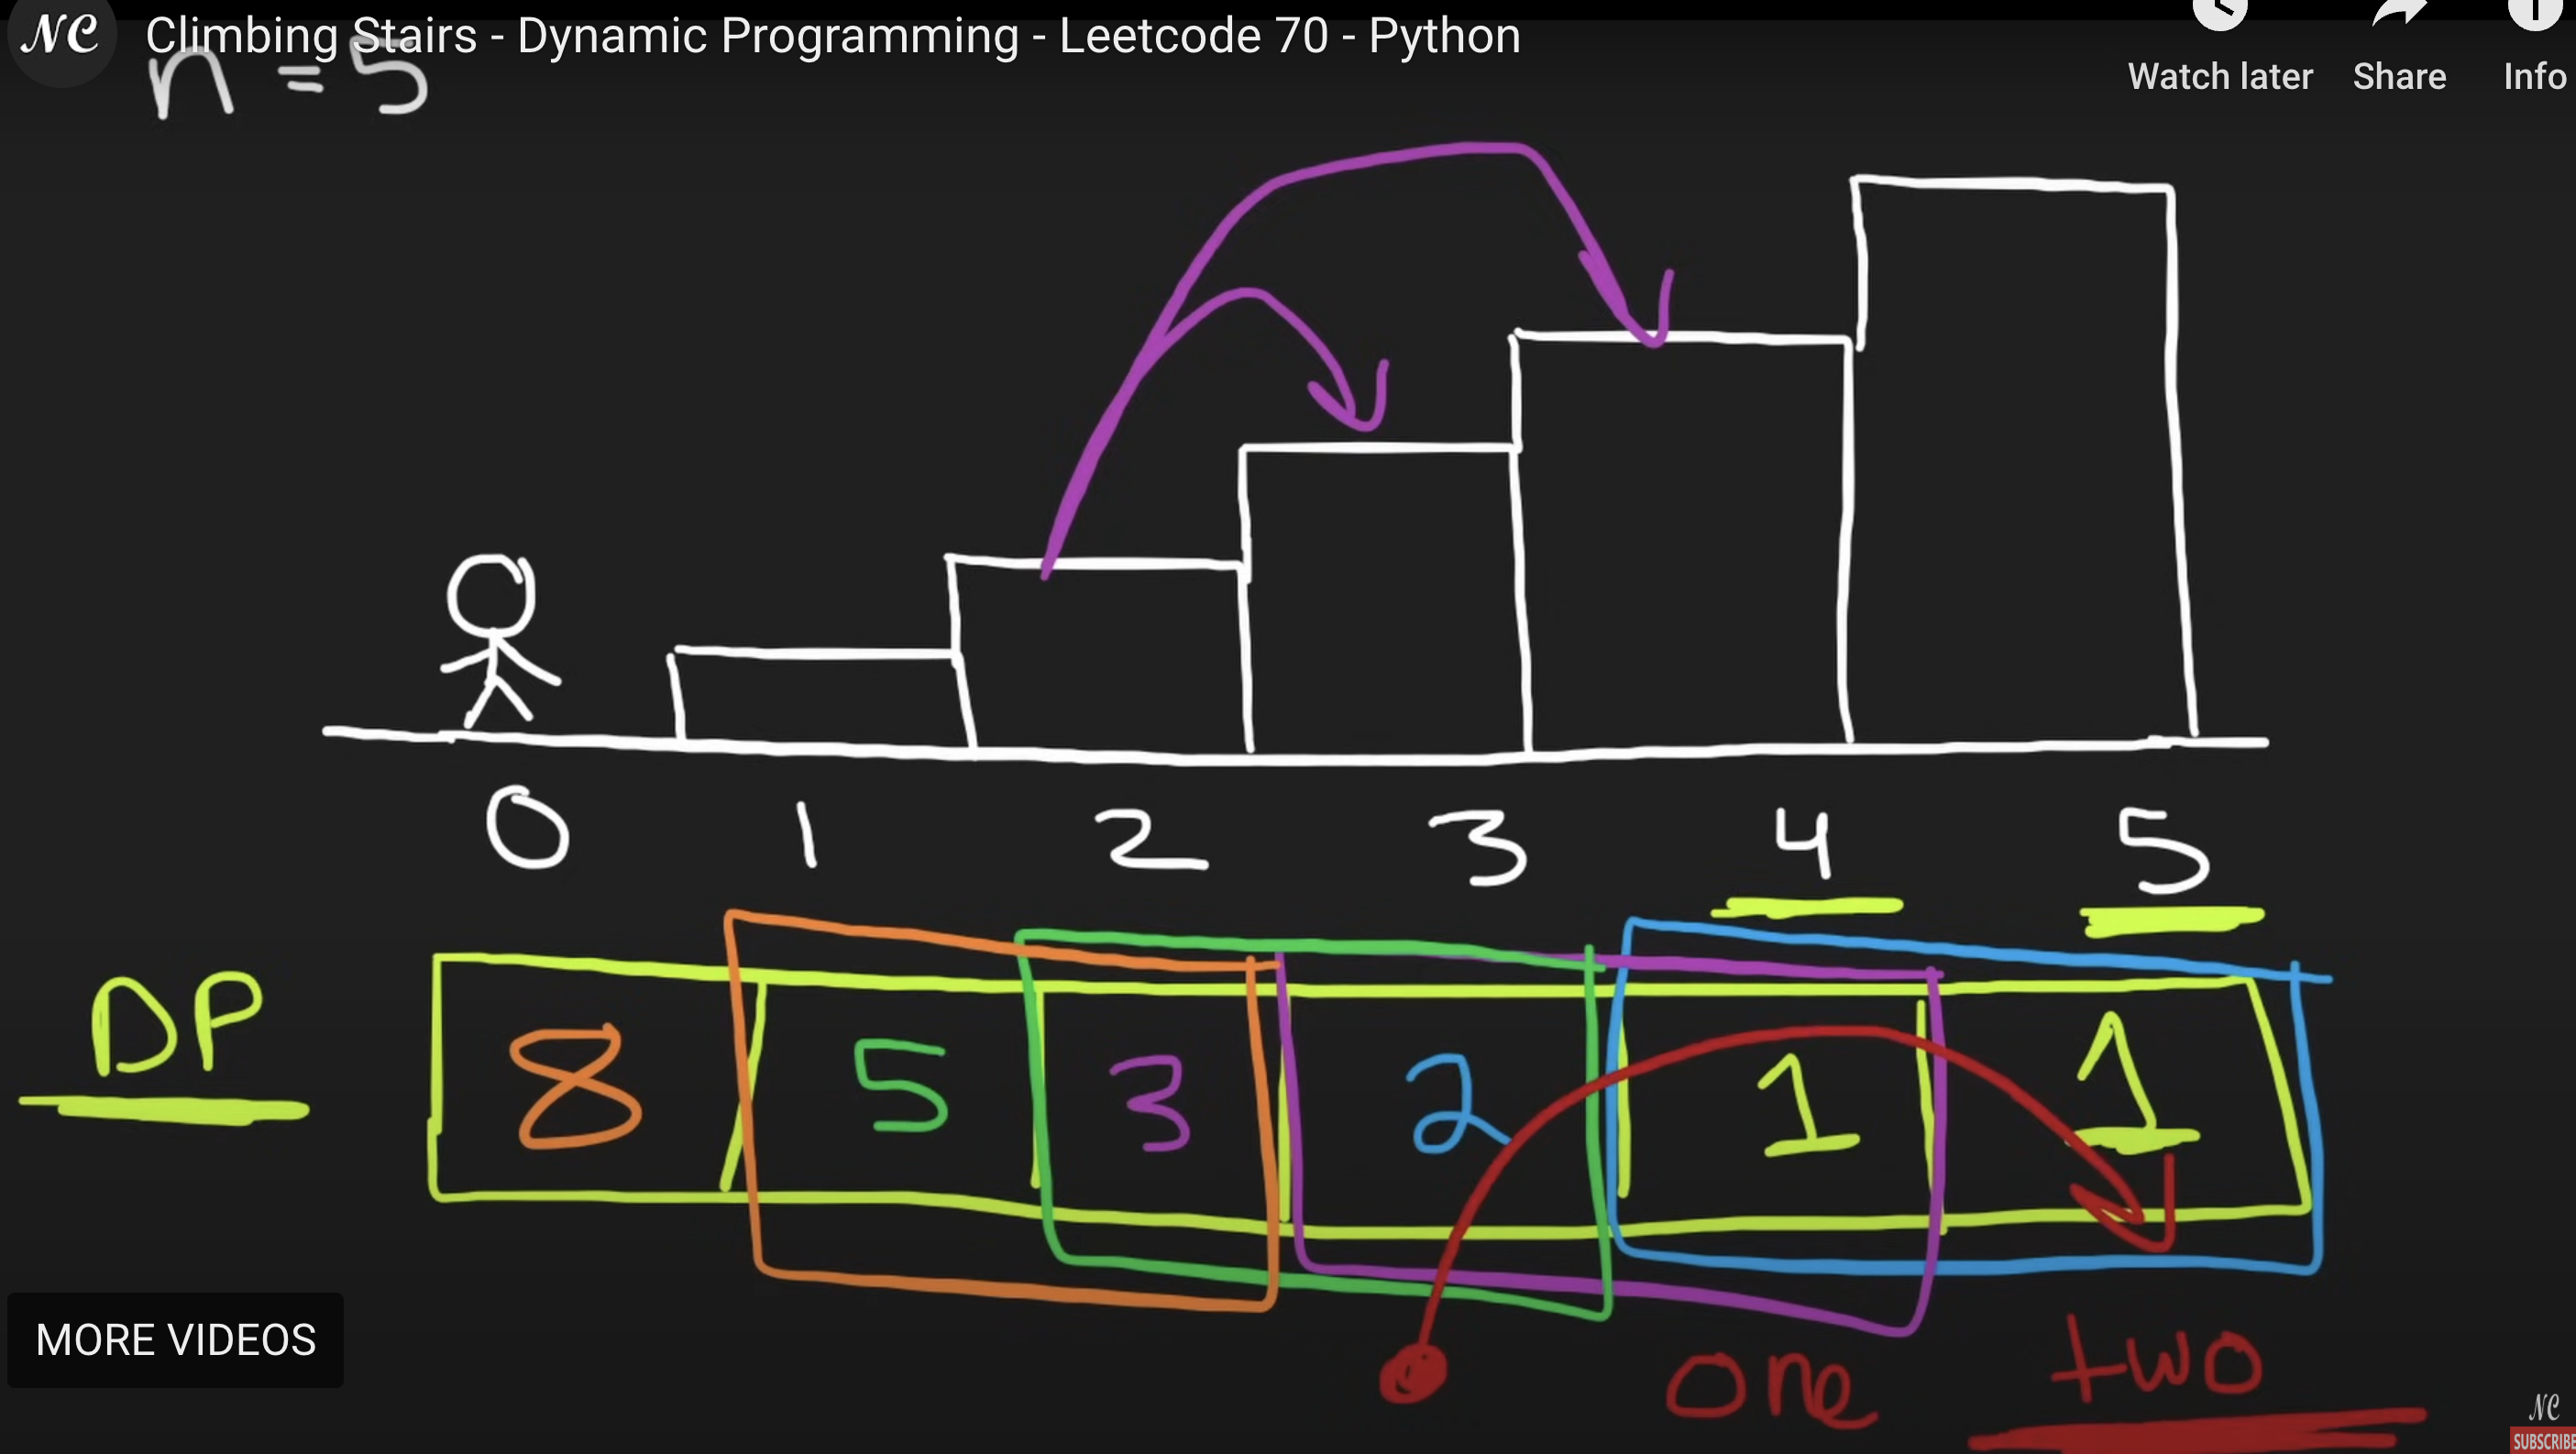 NC Climbing Stairs - Dynamic Programming - Leetcode 70 - Python
Watch later Share Info
n = 5
0 1 2 3 4 5
DP 8 5 3 2 1 1
MORE VIDEOS
one two
NC
SUBSCRIBE